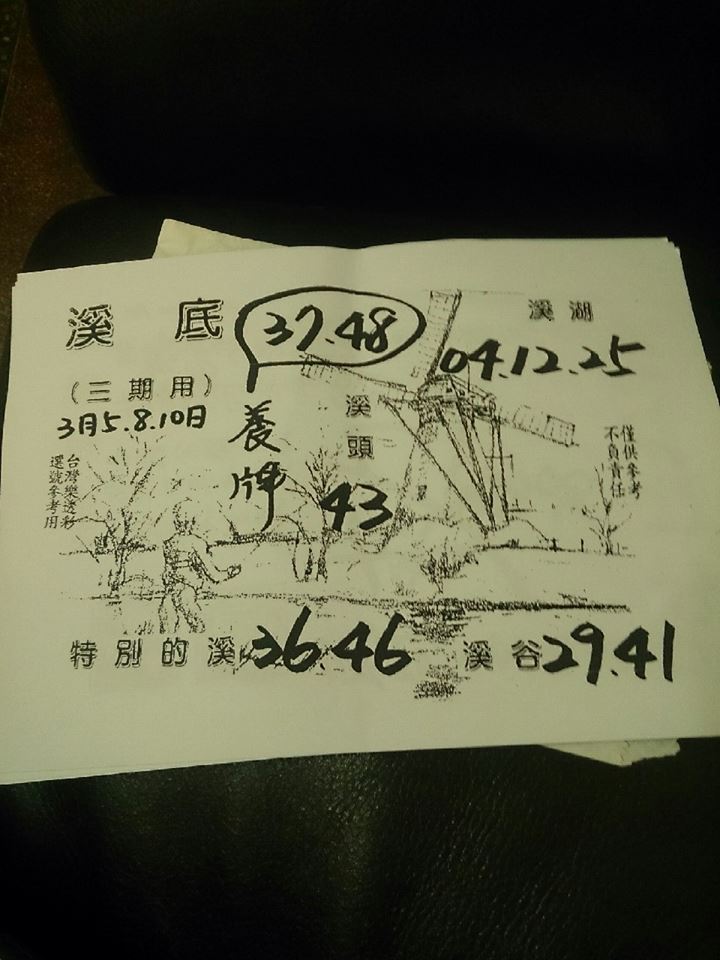 溪底
37.48
溪湖
04.12.25
(三期用)
3月5.8.10日
養牌
溪頭
43
僅供參考
不負責任
台灣樂透彩
選號參考用
特別的溪 36.46
溪谷 29.41